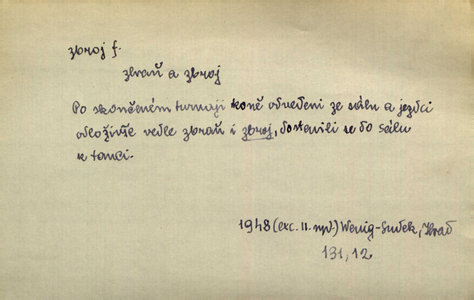 zbroj f.
zbraň a zbroj
Po skončeném turnaji koně odvedeni ze sálu a jezdci
odloživše vedle zbraň i zbroj, dostavili se do sálu
k tanci.
1948 (exc. II. vyd.) Wenig-, Hrad
131, 12